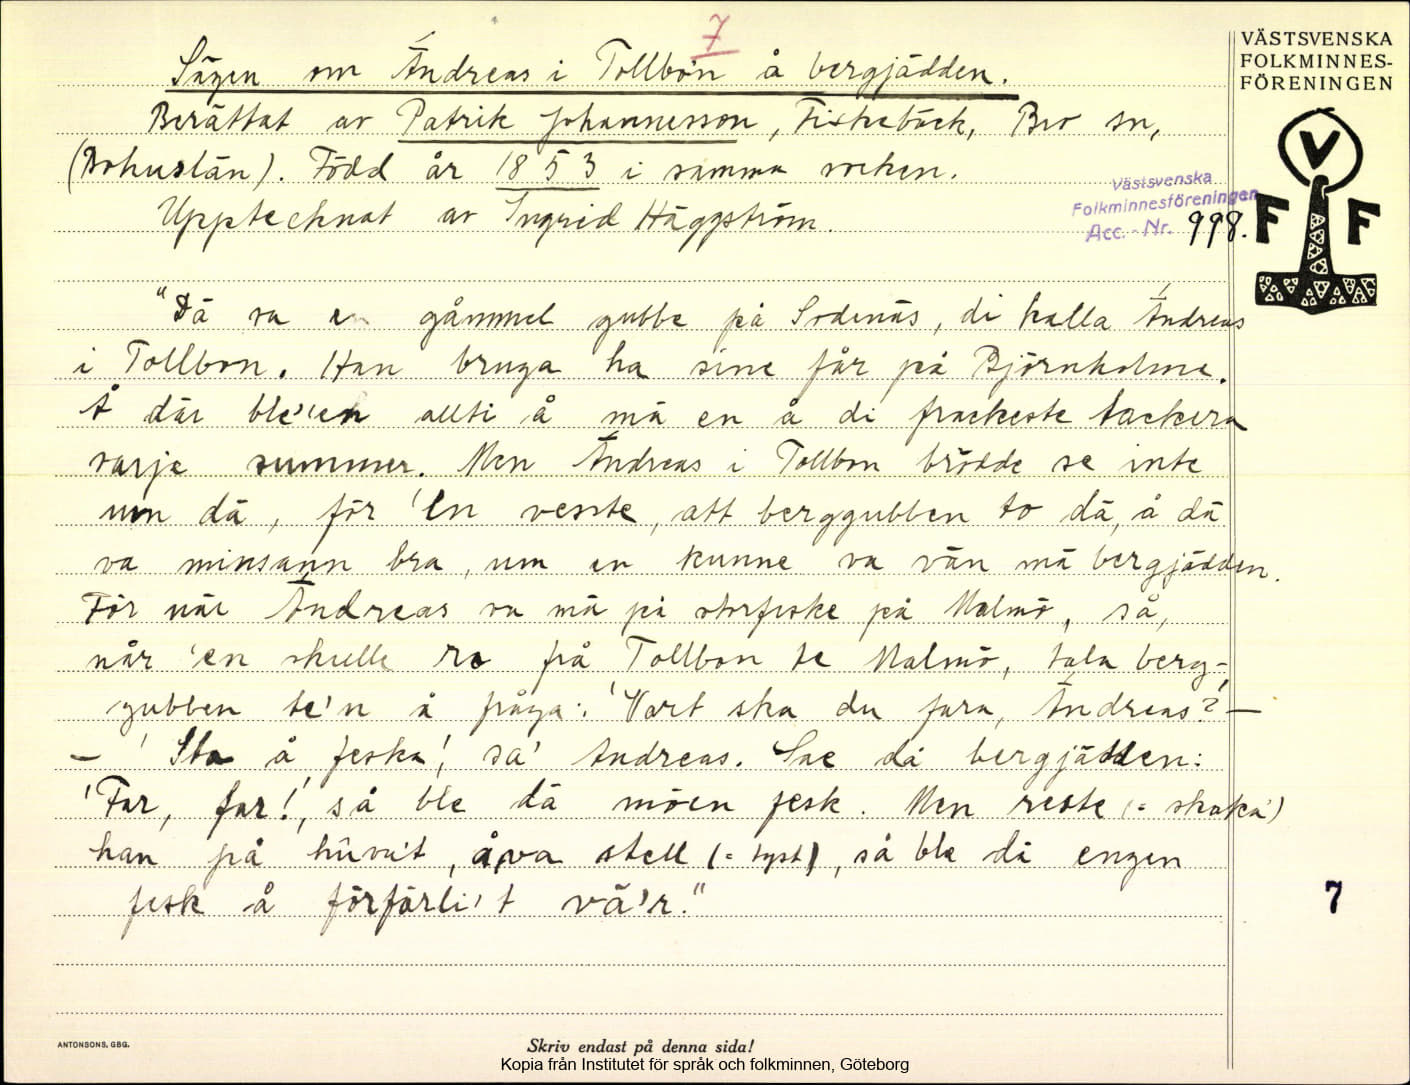 7
Sägen om Ändreas i Tollbon å bergjädden.
Berättat av Patrik Johannesson, Fiskebäck, Bro sn,
(Bohuslän). Född år 1853 i samma socken.
Upptecknat av Ingrid Häggström.
VÄSTSVENSKA
FOLKMINNES-
FÖRENINGEN
V
F F
Västsvenska
Folkminnesföreningen
Acc. - Nr. 998.
"Dä va en gåmmel gubbe på Sodenäs, di kalla Ändreas
i Tollbon. Han bruga ha sine får på Björnholme.
Å där ble'en allti å mä en å di frackeste tackera
varje summer. Men Ändreas i Tollbon brödde se inte
um dä, för 'en veste, att berggubben to dä, å dä
va minsann bra, um en kunne va vän mä bergjädden.
För när Ändreas va mä på storfiske på Malmö, så,
når 'en skulle ro frå Tollbon te Malmö, tala berg-
gubben te'n å fråga: 'Vart ska du fara, Ändreas?' —
— 'Sta å feska', sa' Andreas. Sae då bergjädden:
'Far, far!', så ble dä möen fesk. Men reste (= skaka)
han på huvu't, å va stell (= tyst), så ble då engen
fesk å förfärli't vä'r."
7
ANTONSONS, GBG.
Skriv endast på denna sida!
Kopia från Institutet för språk och folkminnen, Göteborg